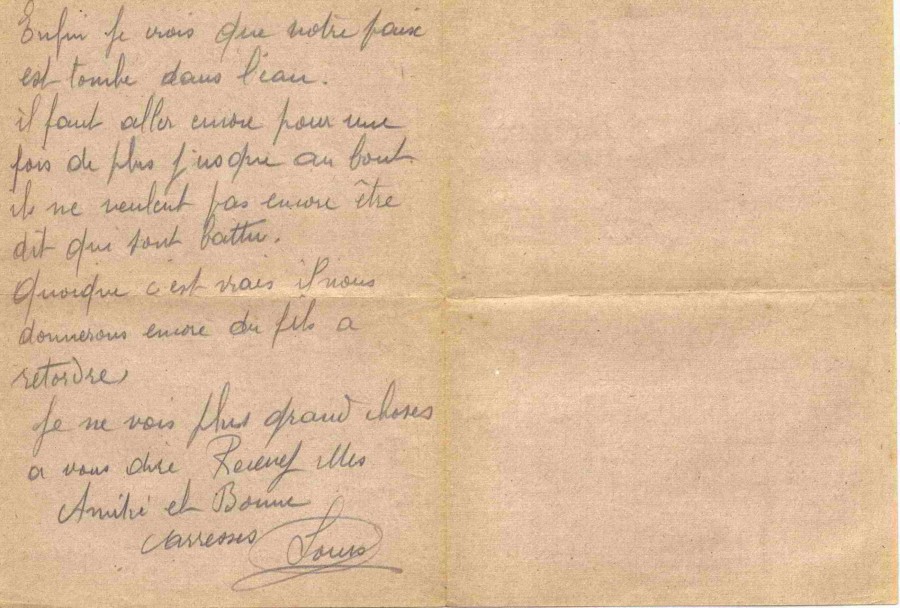 Enfin je vois que notre paix
est tombe dans l'eau.
il faut aller encore pour une
fois de plus jusque au bout.
ils ne veulent pas encore être
dit que sont battu.
quoique c'est vrais il nous
donnerons encore du fils a
retordre,
Je ne vois plus grand choses
a vous dire Recevez Mes
Amitié et Bonne
carresses Louis